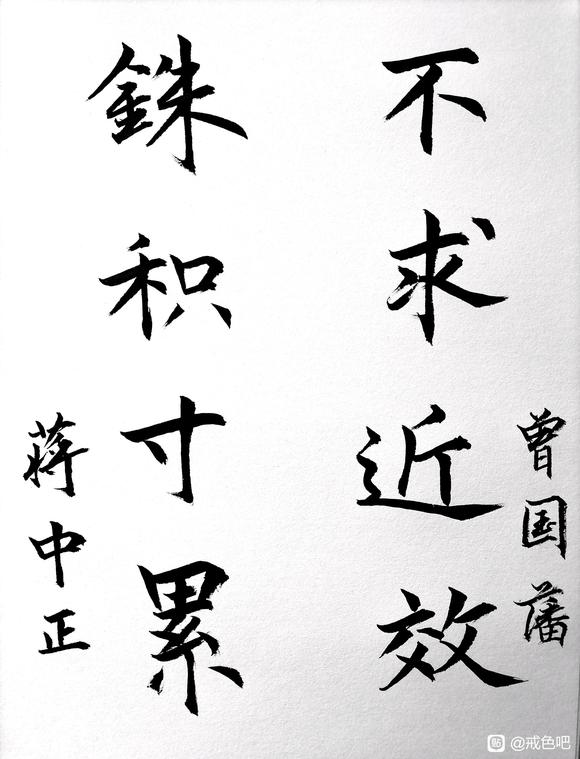 曾国藩
不求近效
銖积寸累
蒋中正
@戒色吧